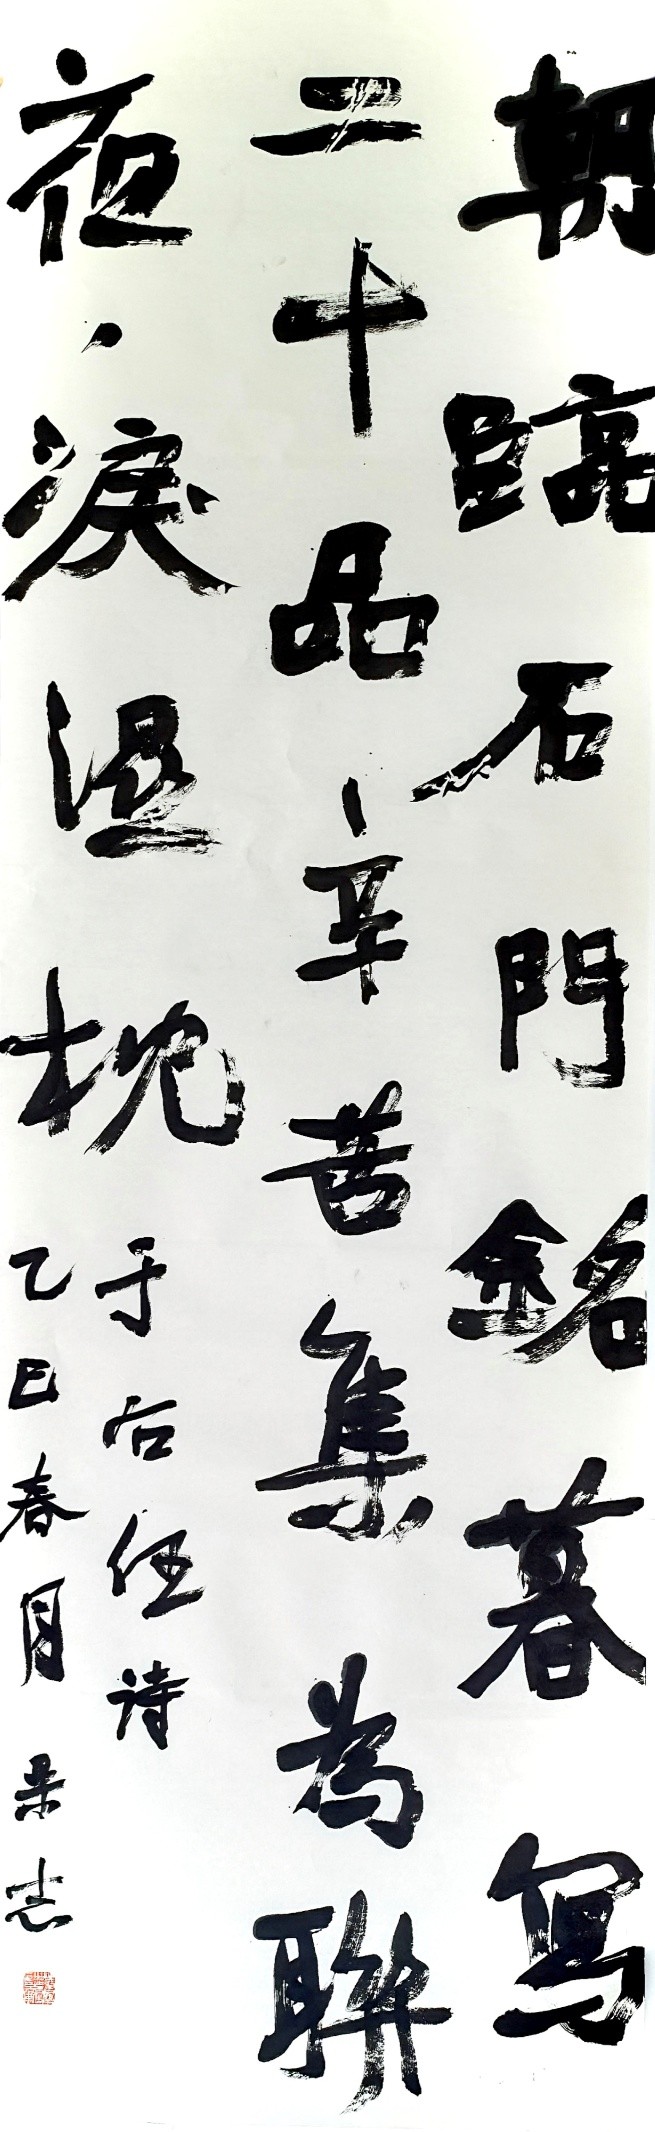 朝臨石門銘暮寫
二十品辛苦集為聯
夜夜淚濕枕
于右任诗
乙巳春月